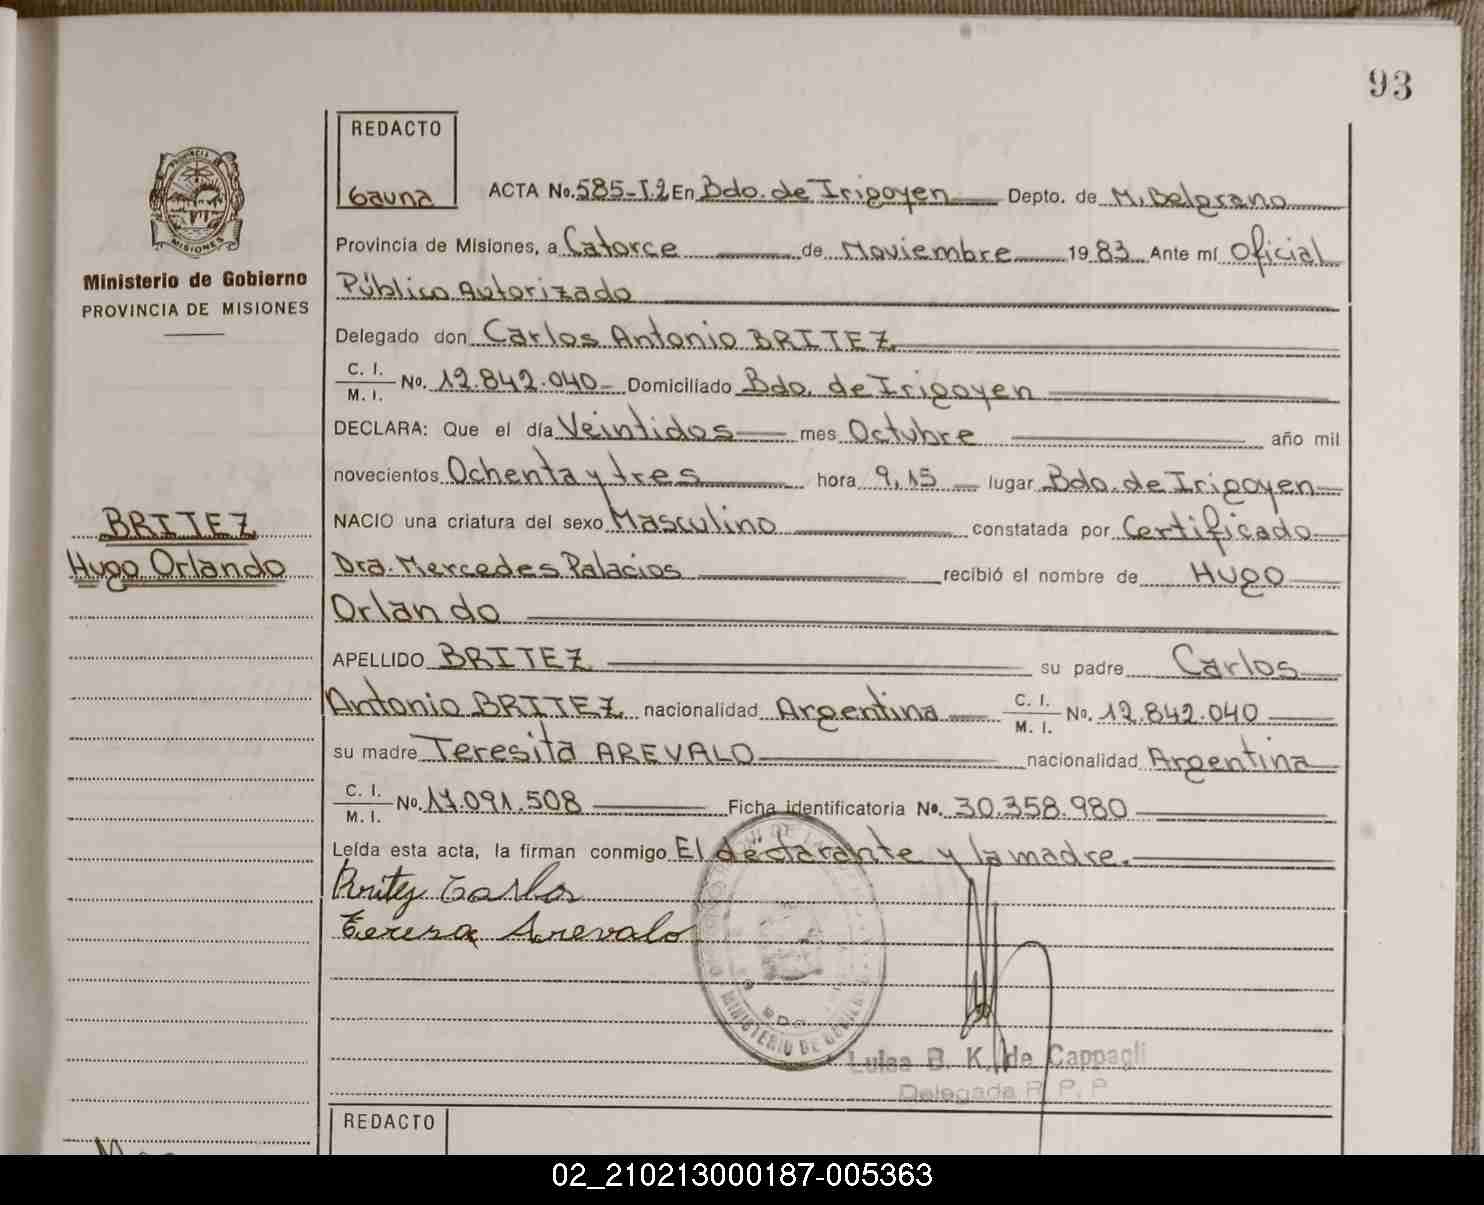 93
REDACTO
Gauna
ACTA No. 585-T.2 En Bdo. de Irigoyen Depto. de M. Belgrano
Provincia de Misiones, a Catorce de Noviembre 1983 Ante mí Oficial
Público Autorizado
Delegado don Carlos Antonio BRITEZ
C. I. / M. I. No. 12.842.040 Domiciliado Bdo. de Irigoyen
DECLARA: Que el día Veintidos mes Octubre año mil
novecientos Ochenta y tres hora 9,15 lugar Bdo. de Irigoyen
NACIO una criatura del sexo Masculino constatada por Certificado
Dra. Mercedes Palacios recibió el nombre de Hugo
Orlando
APELLIDO BRITEZ su padre Carlos
Antonio BRITEZ nacionalidad Argentina C. I. / M. I. No. 12.842.040
su madre Teresita AREVALO nacionalidad Argentina
C. I. / M. I. No. 17.091.508 Ficha identificatoria No. 30.358.980
Leída esta acta, la firman conmigo El declarante y la madre.
Britez Carlos
Teresa Arevalo
PROVINCIA DE
MISIONES
Ministerio de Gobierno
PROVINCIA DE MISIONES
BRITEZ
Hugo Orlando
MINISTERIO DE
Luisa B. K. de Cappagli
Delegada R. P. P
REDACTO
02_210213000187-005363